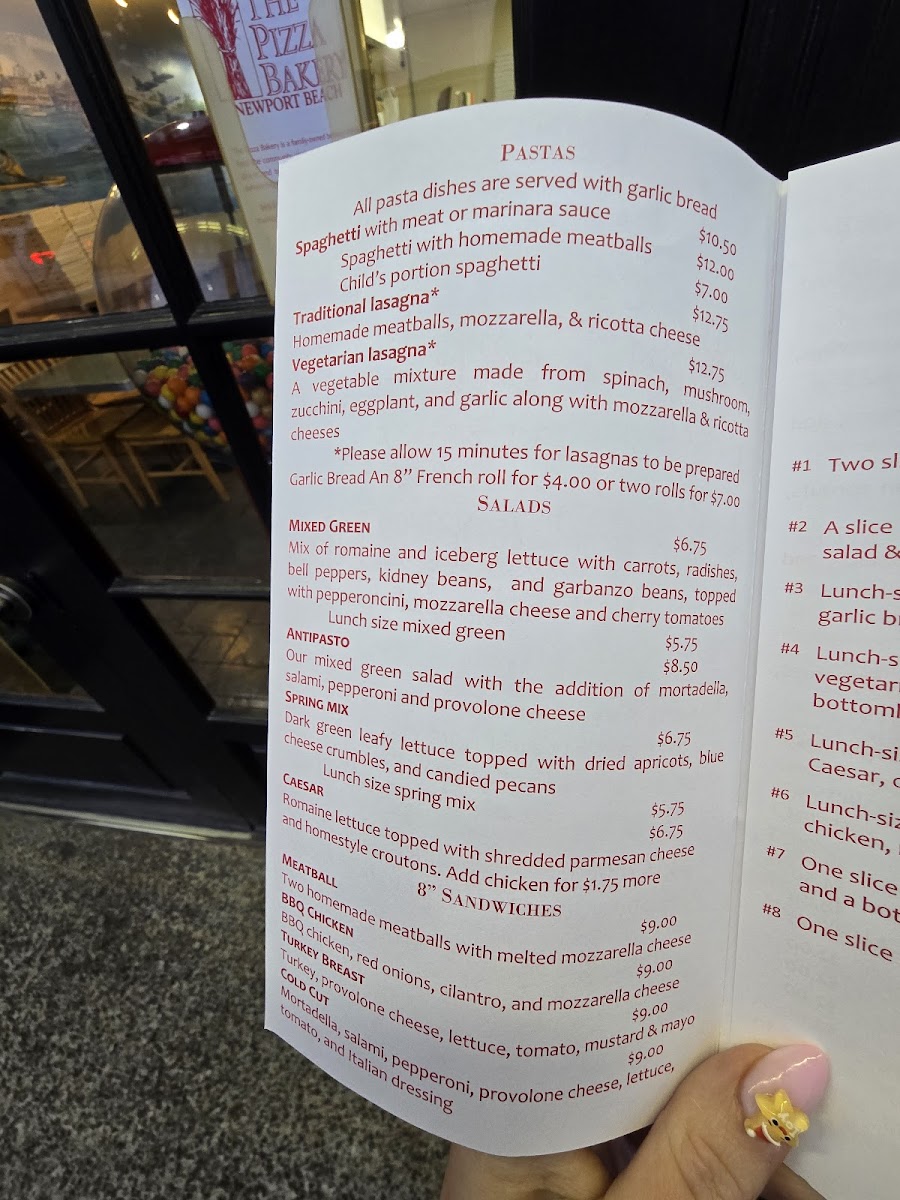 THE
PIZZA
BAKERY
NEWPORT BEACH
PASTAS
All pasta dishes are served with garlic bread
Spaghetti with meat or marinara sauce $10.50
Spaghetti with homemade meatballs $12.00
Child's portion spaghetti $7.00
Traditional lasagna* $12.75
Homemade meatballs, mozzarella, & ricotta cheese
Vegetarian lasagna* $12.75
A vegetable mixture made from spinach, mushroom,
zucchini, eggplant, and garlic along with mozzarella & ricotta
cheeses
*Please allow 15 minutes for lasagnas to be prepared
Garlic Bread An 8" French roll for $4.00 or two rolls for $7.00
SALADS
MIXED GREEN $6.75
Mix of romaine and iceberg lettuce with carrots, radishes,
bell peppers, kidney beans, and garbanzo beans, topped
with pepperoncini, mozzarella cheese and cherry tomatoes
Lunch size mixed green $5.75
ANTIPASTO $8.50
Our mixed green salad with the addition of mortadella,
salami, pepperoni and provolone cheese
SPRING MIX $6.75
Dark green leafy lettuce topped with dried apricots, blue
cheese crumbles, and candied pecans
Lunch size spring mix $5.75
CAESAR $6.75
Romaine lettuce topped with shredded parmesan cheese
and homestyle croutons. Add chicken for $1.75 more
8" SANDWICHES
MEATBALL $9.00
Two homemade meatballs with melted mozzarella cheese
BBQ CHICKEN $9.00
BBQ chicken, red onions, cilantro, and mozzarella cheese
TURKEY BREAST $9.00
Turkey, provolone cheese, lettuce, tomato, mustard & mayo
COLD CUT $9.00
Mortadella, salami, pepperoni, provolone cheese, lettuce,
tomato, and Italian dressing
#1 Two sl
#2 A slice
salad &
#3 Lunch-s
garlic b
#4 Lunch-s
vegetar
bottoml
#5 Lunch-si
Caesar,
#6 Lunch-siz
chicken,
#7 One slice
and a bot
#8 One slice